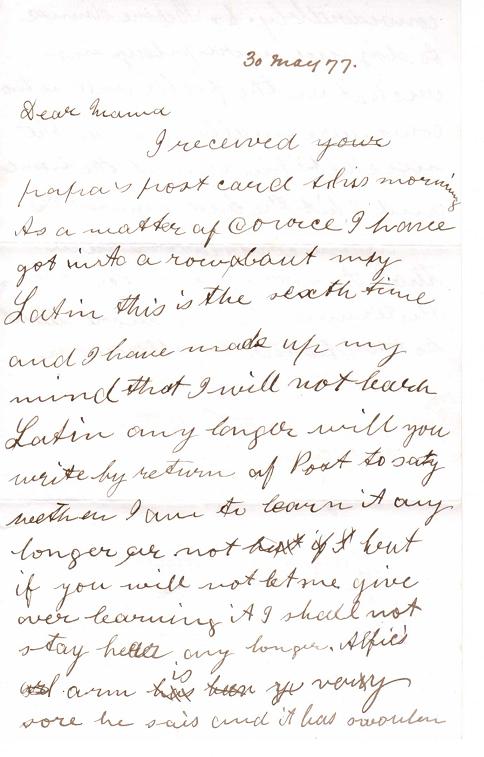 30 May 77.
Dear Mama
I received your
papa's post card this morning
As a matter of Corvice I have
got into a row about my
Latin this is the sexth time
and I have made up my
mind that I will not learn
Latin any longer will you
write by return of Post to say
wether I am to learn it any
longer or not but if I but
if you will not let me give
over learning it I shall not
stay hear any longer. Alfie's
arm is very
sore he sais and it has swoolen